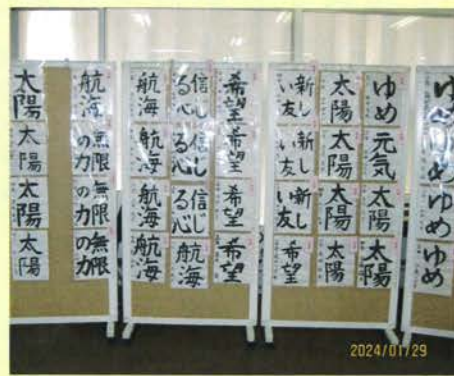 太陽
太陽
太陽
太陽
航海
無限
の力
無限
の力
無限
の力
航海
航海
航海
航海
信じ
る心
信じ
る心
信じ
る心
航海
希望
希望
希望
希望
新し
い友
新し
い友
新し
い友
希望
太陽
太陽
太陽
太陽
ゆめ
元気
太陽
太陽
ゆめ
ゆめ
ゆめ
ゆめ
2024/01/29